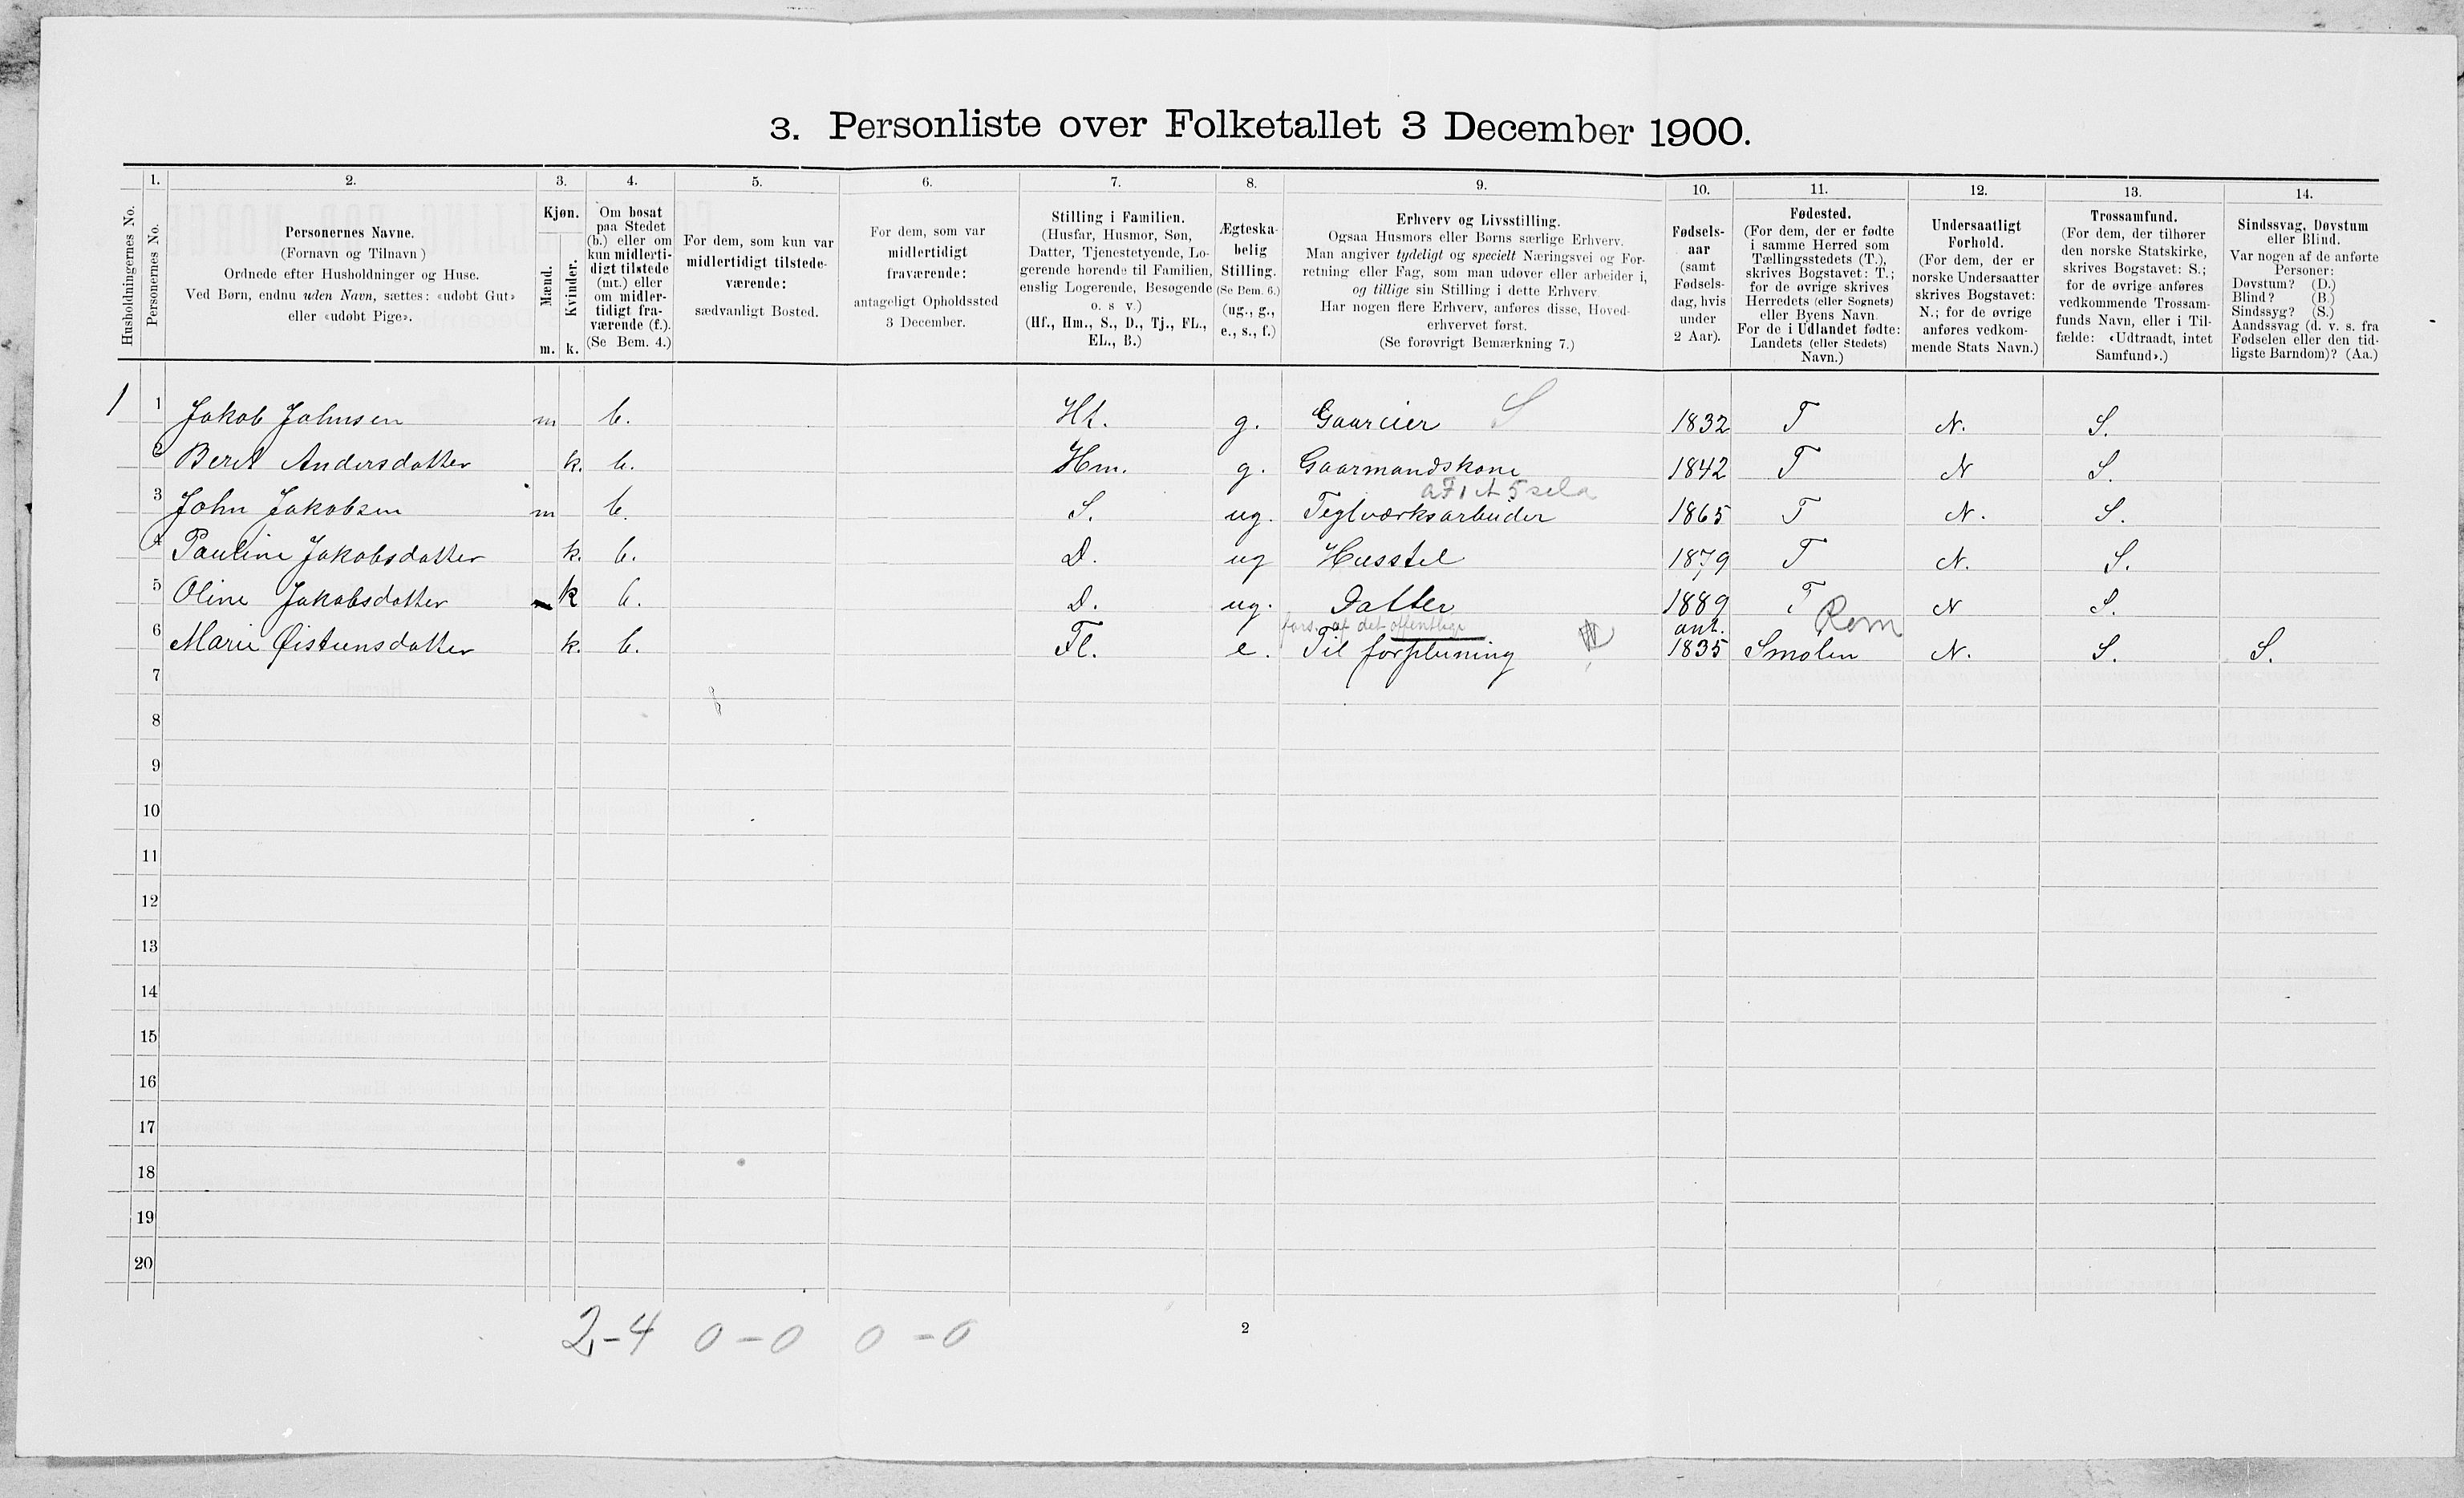 3. Personliste over Folketallet 3 December 1900.
Husholdningernes No.
1.
Personernes No.
2.
Personernes Navne.
(Fornavn og Tilnavn)
Ordnede efter Husholdninger og Huse.
Ved Børn, endnu uden Navn, sættes: «udøbt Gut»
eller «udøbt Pige».
3.
Kjøn.
Mænd.
Kvinder.
m. k.
4.
Om bosat
paa Stedet
(b.) eller om
kun midlerti-
digt tilstede
(mt.) eller
om midler-
tidigt fra-
værende (f.).
(Se Bem. 4.)
5.
For dem, som kun var
midlertidigt tilstede-
værende:
sædvanligt Bosted.
6.
For dem, som var
midlertidigt
fraværende:
antageligt Opholdssted
3 December.
7.
Stilling i Familien.
(Husfar, Husmor, Søn,
Datter, Tjenestetyende, Lo-
gerende hørende til Familien,
enslig Logerende, Besøgende
o. s v.)
(Hf., Hm., S., D., Tj., FL.,
EL., B.)
8.
Ægteska-
belig
Stilling.
(Se Bem. 6.)
(ug., g.,
e., s., f.)
9.
Erhverv og Livsstilling.
Ogsaa Husmors eller Børns særlige Erhverv.
Man angiver tydeligt og specielt Næringsvei og For-
retning eller Fag, som man udøver eller arbeider i,
og tillige sin Stilling i dette Erhverv.
Har nogen flere Erhverv, anføres disse, Hoved-
erhvervet først.
(Se forøvrigt Bemærkning 7.)
10.
Fødsels-
aar
(samt
Fødsels-
dag, hvis
under
2 Aar).
11.
Fødested.
(For dem, der er fødte
i samme Herred som
Tællingsstedets (T.),
skrives Bogstavet: T.;
for de øvrige skrives
Herredets (eller Sognets)
eller Byens Navn.
For de i Udlandet fødte:
Landets (eller Stedets)
Navn.)
12.
Undersaatligt
Forhold.
(For dem, der er
norske Undersaatter
skrives Bogstavet:
N.; for de øvrige
anføres vedkom-
mende Stats Navn.)
13.
Trossamfund.
(For dem, der tilhører
den norske Statskirke,
skrives Bogstavet: S.;
for de øvrige anføres
vedkommende Trossam-
funds Navn, eller i Til-
fælde: «Udtraadt, intet
Samfund».)
14.
Sindssvag, Døvstum
eller Blind.
Var nogen af de anførte
Personer:
Døvstum? (D.)
Blind? (B.)
Sindssyg? (S.)
Aandssvag (d. v. s. fra
Fødselen eller den tid-
ligste Barndom)? (Aa.)
1 1 Jakob Johnsen m b. Hf. g. Gaarder S 1832 T N. S.
2 Berit Andersdatter k. b. Hm. g. Gaarmandskone 1842 T N S.
3 John Jakobsen m b. S. ug. Teglværksarbeider 1865 T N. S.
4 Pauline Jakobsdatter k. b. D. ug Husstel 1879 T N. S.
5 Oline Jakobsdatter k b. D. ug. Datter 1889 T N S.
fors. af det offentlige ant. Rom
6 Marie Øistensdatter k. b. Fl. e. Til forpleining 1835 Smølen N. S. S.
7
8
9
10
11
12
13
14
15
16
17
18
19
20
2-4 0-0 0-0
2